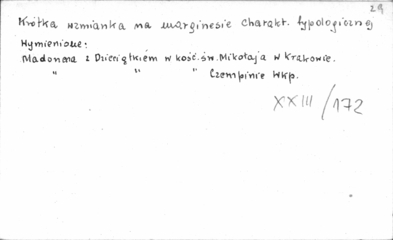 29
Krótka wzmianka na marginesie charakt. typologicznej
Wymienione:
Madonna z Dzieciątkiem w kość. św. Mikołaja w Krakowie.
" " " Czempinie Wkp.
XXIII/172